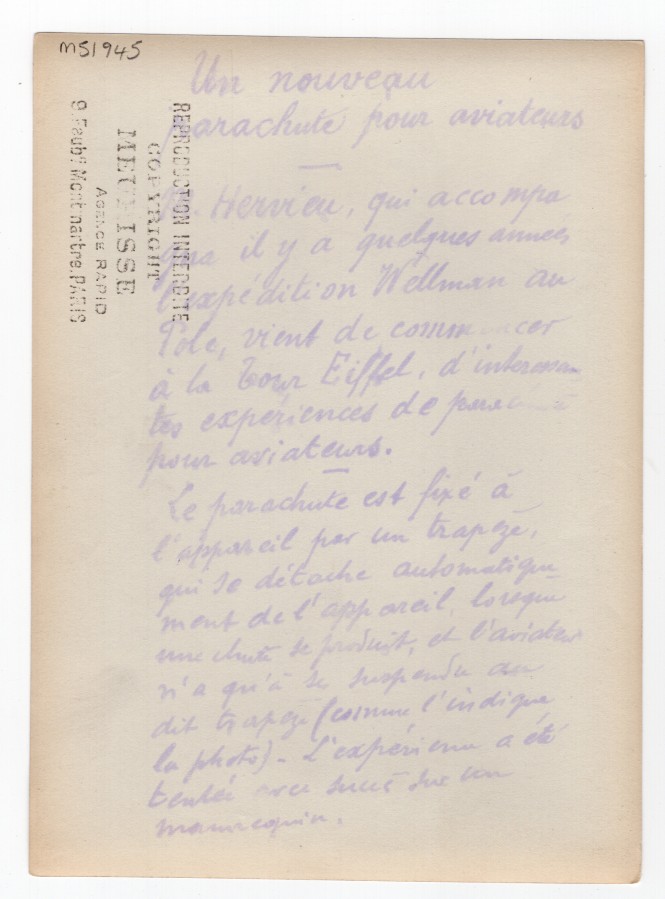 MS1945
Un nouveau
parachute pour aviateurs
M. Hervieu, qui accompa
gna il y a quelques années
l'expédition Wellman au
Pole, vient de commencer
à la Tour Eiffel, d'interessan
tes expériences de
pour aviateurs.
Le parachute est fixé à
l'appareil par un trapèze,
qui se détache automatique
ment de l'appareil, lorsque
une chute se produit, et l'aviateur
n'a qu'à se suspendre au
dit trapeze (comme l'indique
la photo) - L'expérience a été
tentée avec succès sur un
mannequin.
REPRODUCTION INTERDITE
COPYRIGHT
MEURISSE
AGENCE RAPID
9. Faubg Montmartre. PARIS